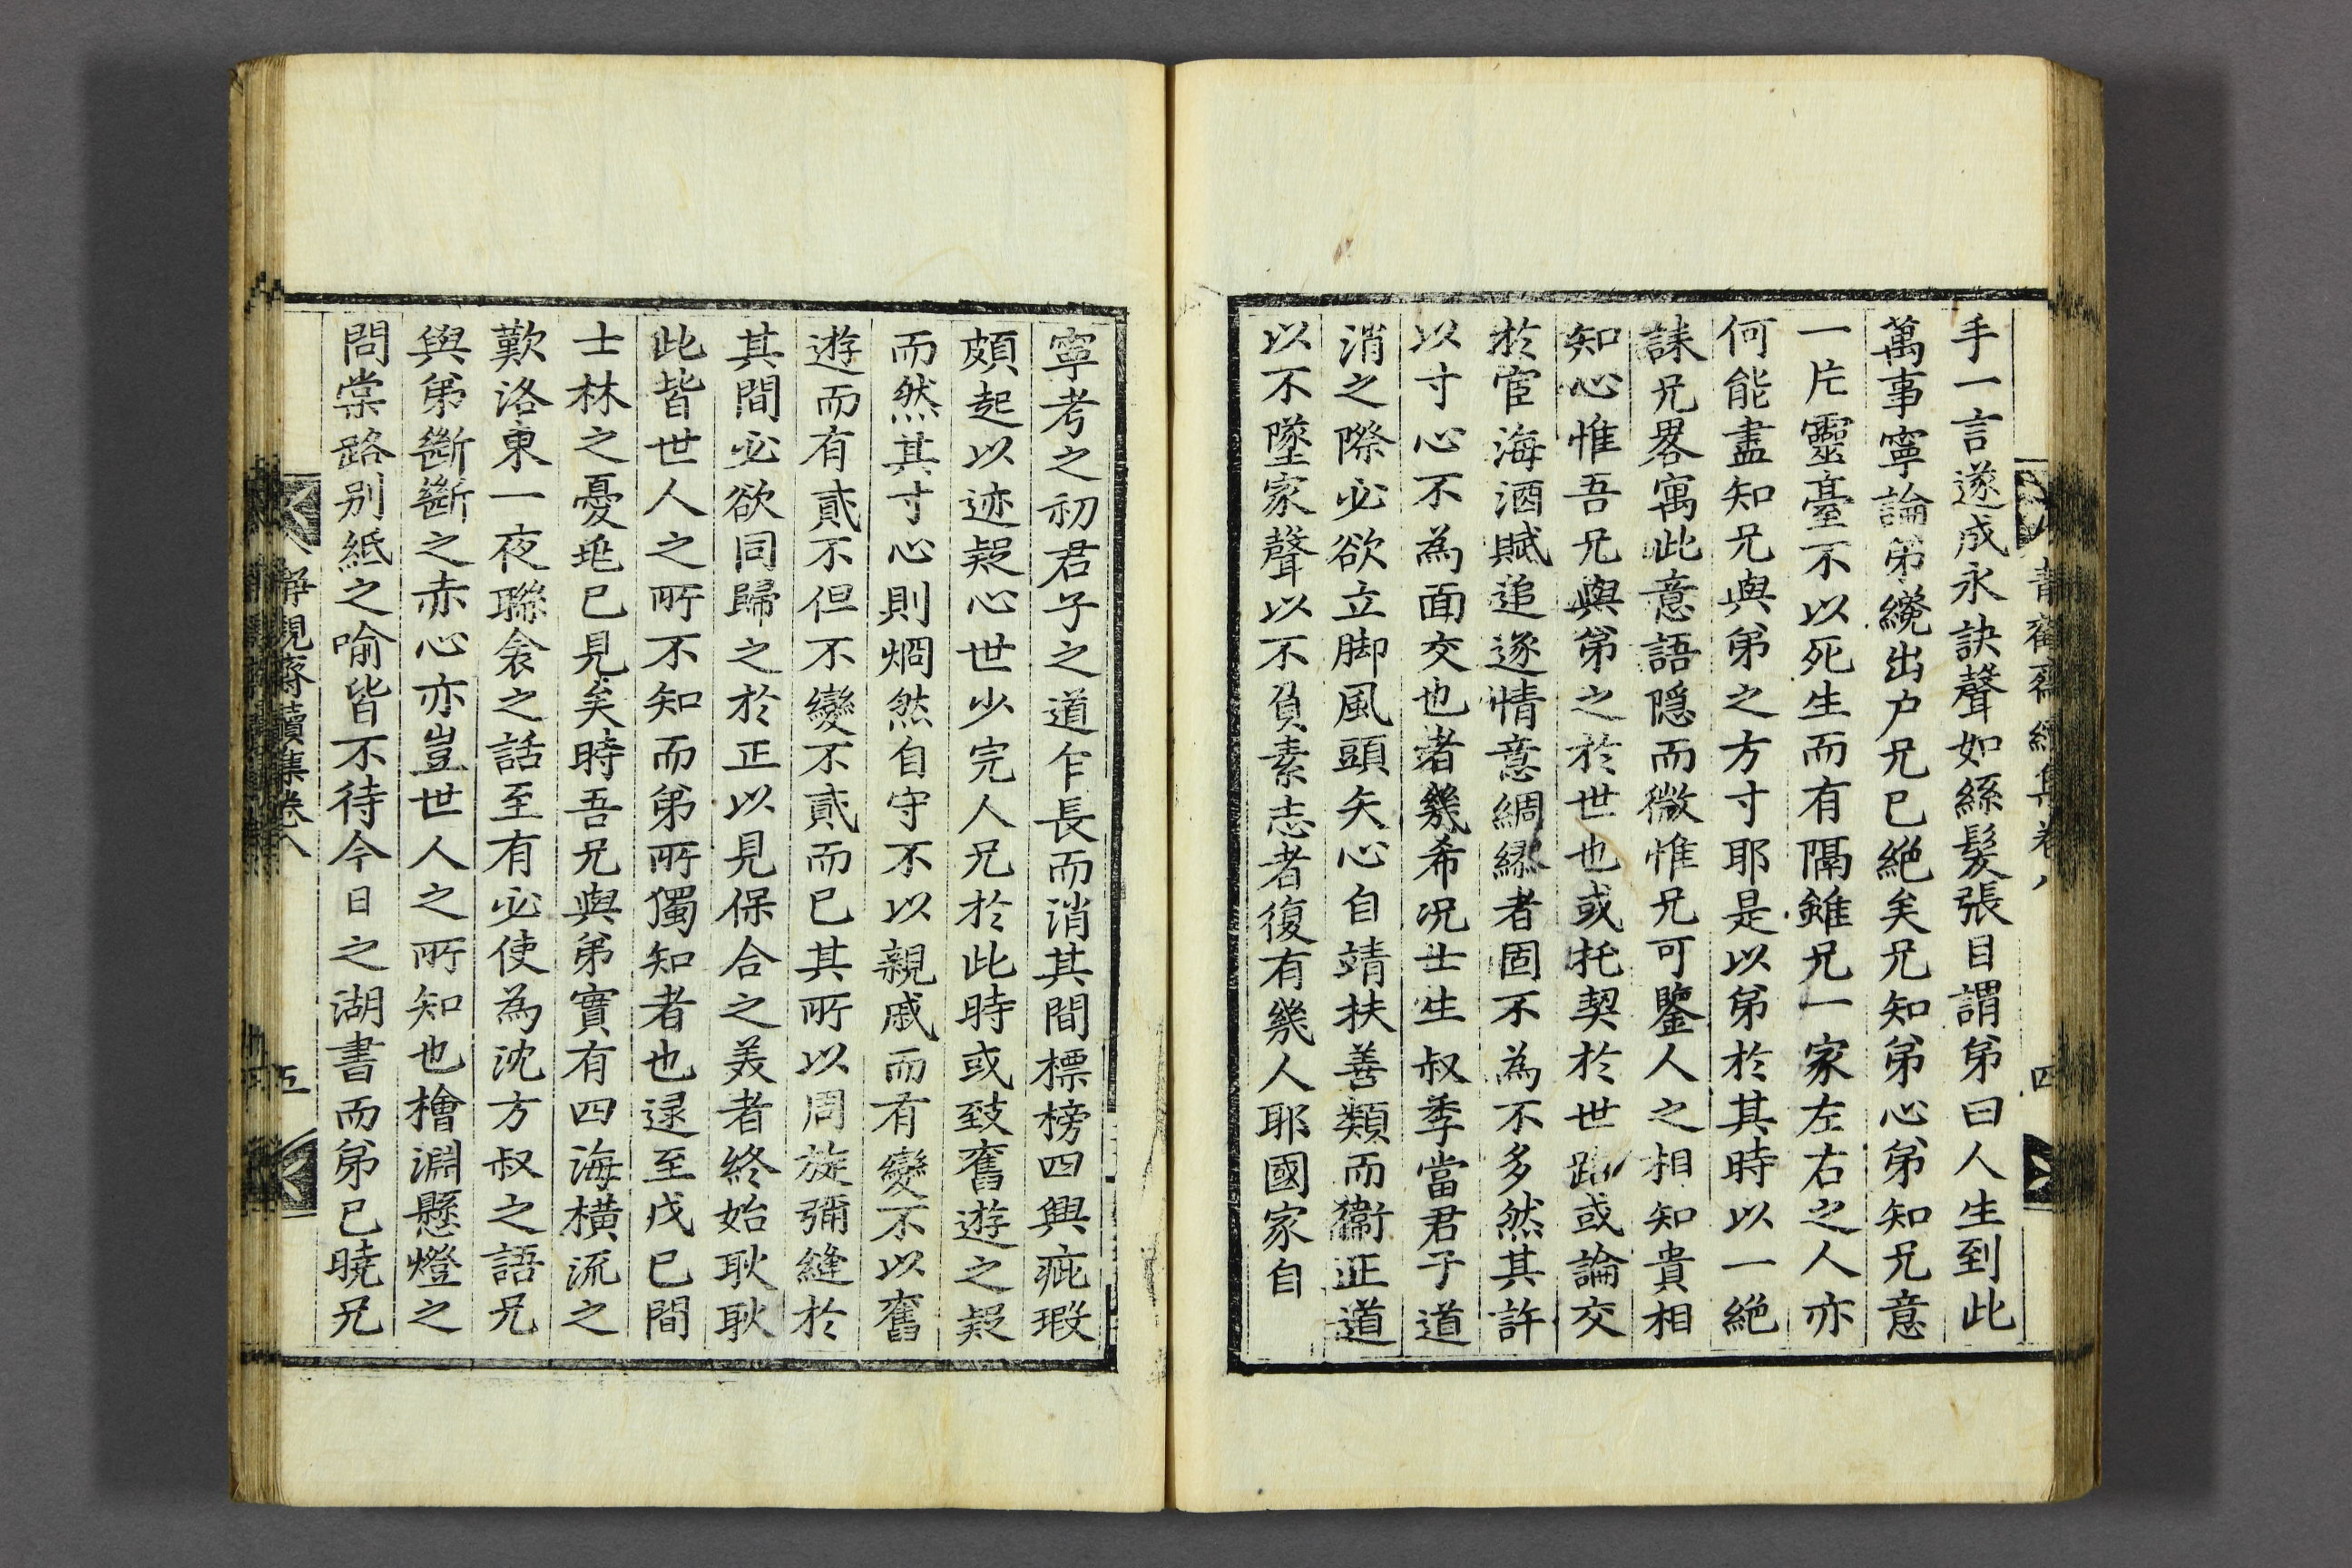 手一言遂成永訣聲如絲髮張目謂弟曰人生到此
萬事寧論弟纔出户兄已絕矣兄知弟心弟知兄意
一片靈臺不以死生而有隔雖兄一家左右之人亦
何能盡知兄與弟之方寸耶是以弟於其時以一絕
誄兄畧寓此意語隱而微惟兄可鑒人之相知貴相
知心惟吾兄與弟之於世也或托契於世路或論交
於宦海酒賦追逐情意綢繆者固不為不多然其許
以寸心不為面交也者幾希况士生叔季當君子道
消之際必欲立脚風頭矢心自靖扶善類而衞正道
以不墜家聲以不負素志者復有幾人耶國家自
寧考之初君子之道乍長而消其間標榜四興疵瑕
頗起以迹疑心世少完人兄於此時或致奮遊之疑
而然其寸心則炯然自守不以親戚而有變不以奮
遊而有貳不但不變不貳而已其所以周旋彌縫於
其間必欲同歸之於正以見保合之美者終始耿耿
此皆世人之所不知而弟所獨知者也逯至戊巳間
士林之憂乖已見矣時吾兄與弟實有四海橫流之
歎洛東一夜聯衾之話至有必使為沈方叔之語兄
與弟斷斷之赤心亦豈世人之所知也檜淵懸燈之
問棠路别紙之喻皆不待今日之湖書而弟已曉兄
靜觀齋續集卷八
五